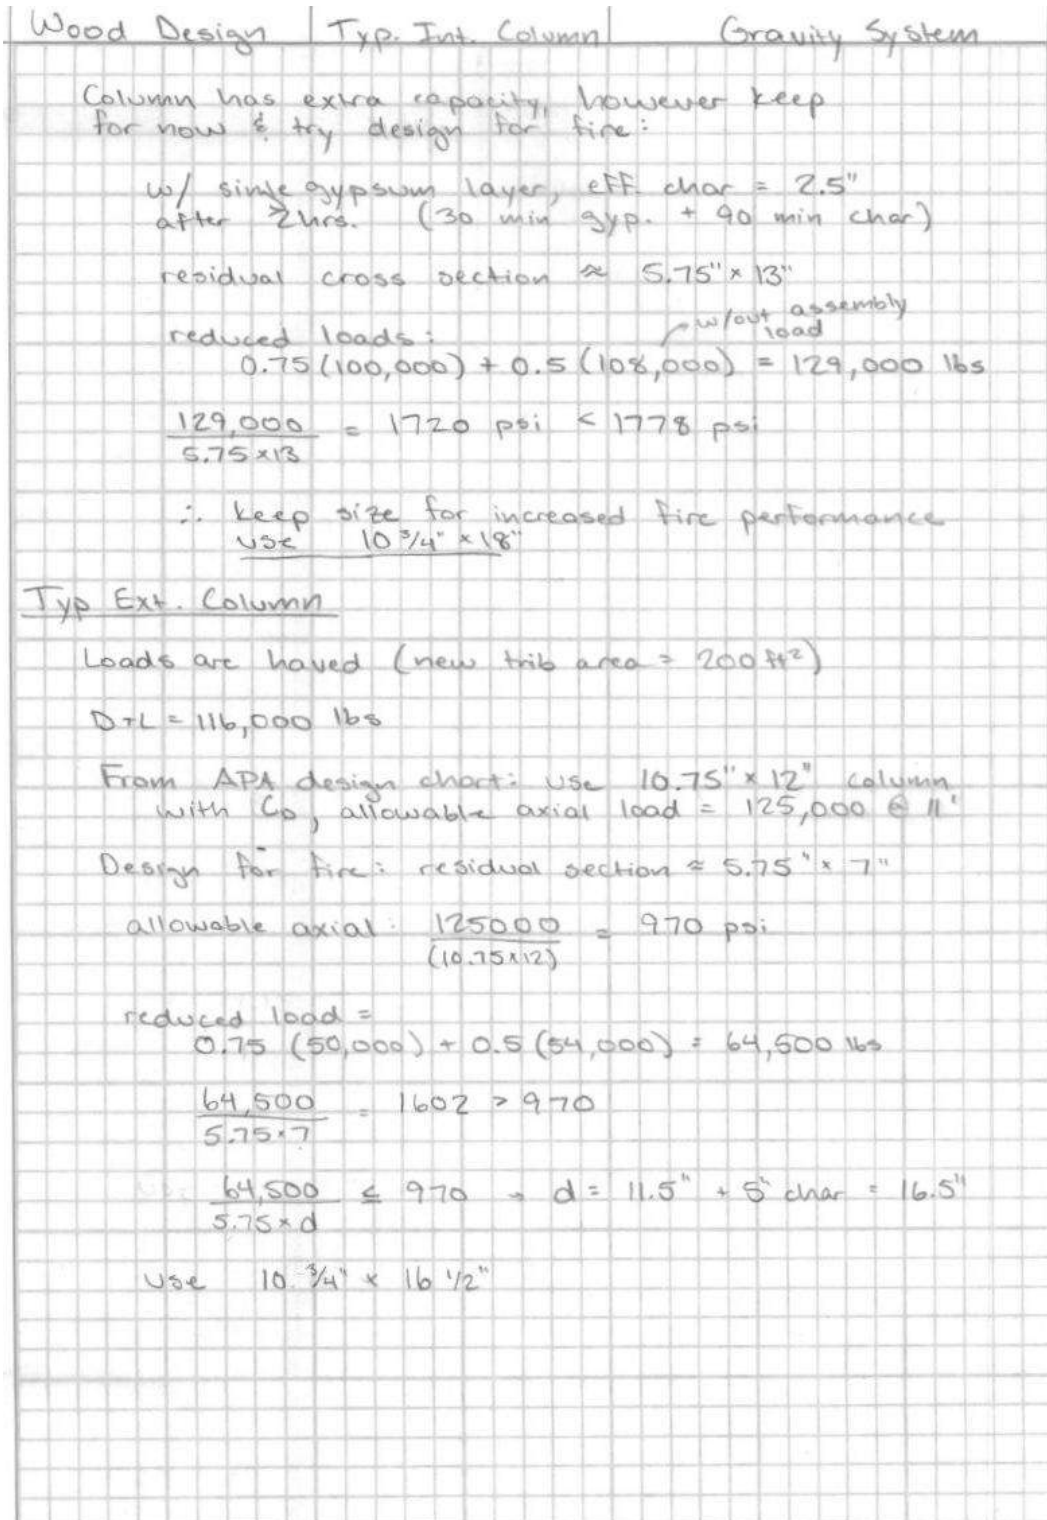 Wood Design | Typ. Int. Column | Gravity System
Column has extra capacity, however keep
for now & try design for fire:
w/ single gypsum layer, eff. char = 2.5"
after 2hrs. (30 min gyp. + 90 min char)
residual cross section ≈ 5.75" x 13"
w/out assembly
load
reduced loads:
0.75(100,000) + 0.5(108,000) = 129,000 lbs
129,000 / 5.75 x 13 = 1720 psi < 1778 psi
∴ keep size for increased fire performance
use 10 3/4" x 18"
Typ Ext. Column
Loads are haved (new trib area = 200 ft²)
D+L = 116,000 lbs
From APA design chart: use 10.75" x 12" column
with Co, allowable axial load = 125,000 @ 11'
Design for fire: residual section ≈ 5.75" x 7"
allowable axial: 125000 / (10.75x12) = 970 psi
reduced load =
0.75 (50,000) + 0.5 (54,000) = 64,500 lbs
64,500 / 5.75 · 7 = 1602 > 970
64,500 / 5.75 x d ≤ 970 → d = 11.5" + 5" char = 16.5"
use 10 3/4" x 16 1/2"